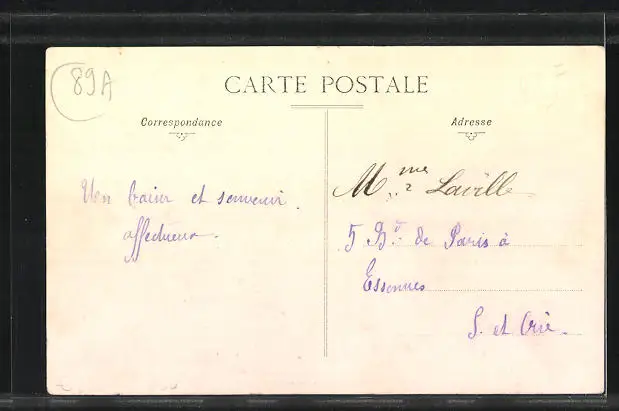 89A
CARTE POSTALE
Correspondance
Adresse
Un baiser et souvenir
affectueux.
Mme Laville
5 Bd de Paris à
Essonnes
S. et Oise.